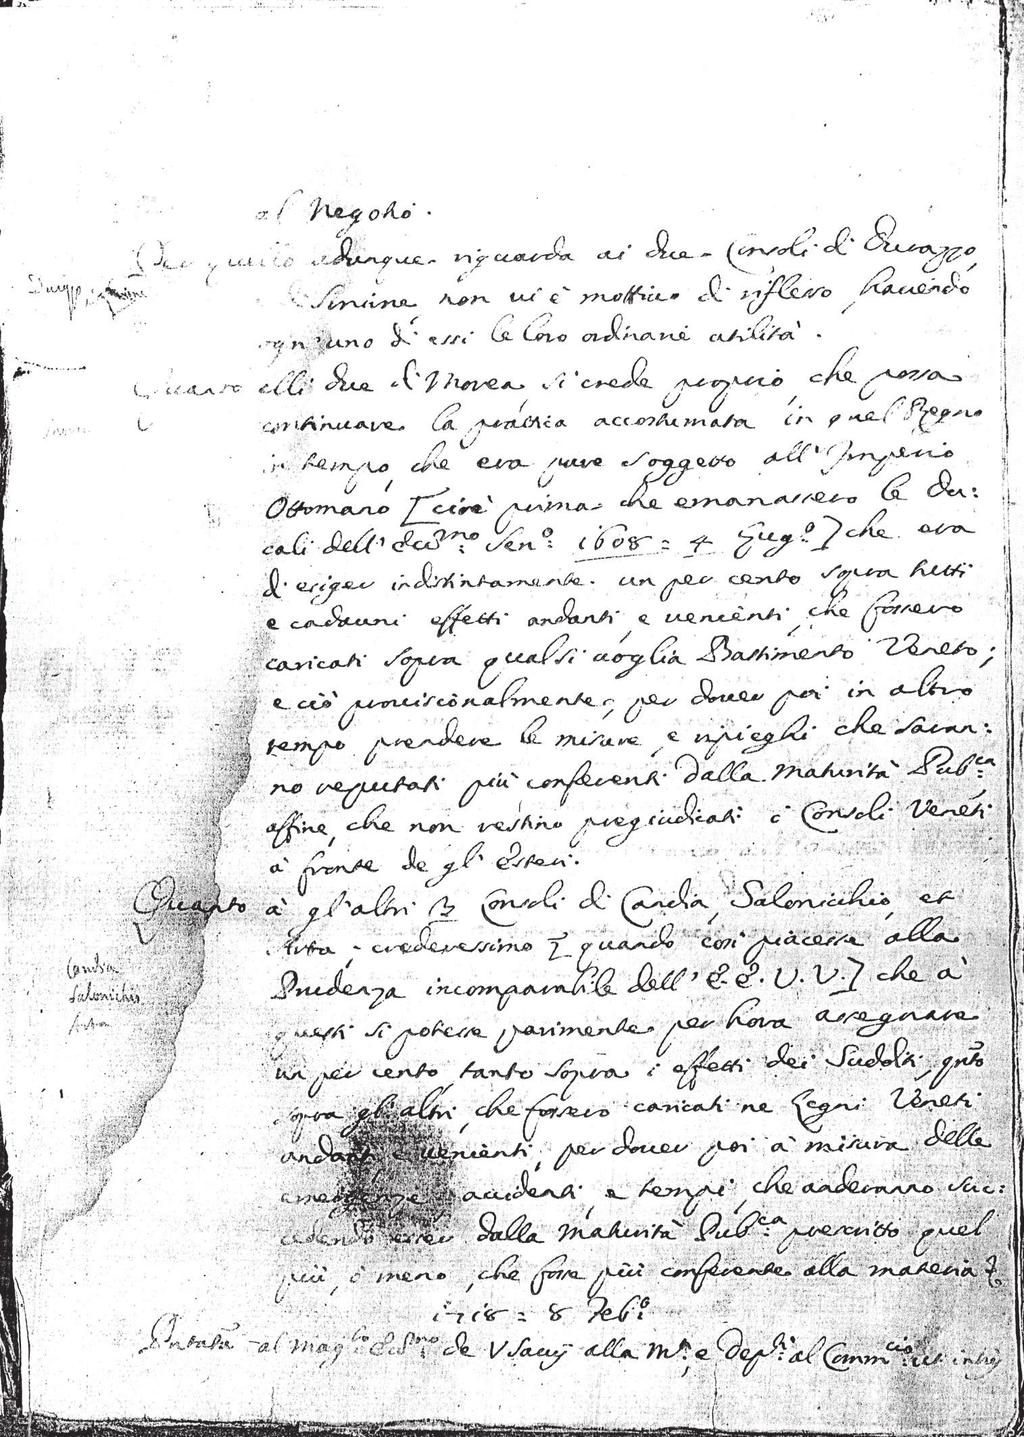 al Negotio.
Per quello adunque riguarda ai due Consoli di Durazzo,
Smirne, non ui è mottiuo di riflesso, hauendo
ogn'uno di essi le loro ordinarie utilità.
Quanto alli due di Morea, si crede proprio, che possa
continuare la prattica accostumata in quel Regno
in tempo, che era pure soggetto all'Imperio
Ottomano [cioè prima che emanassero le Du:
cali dell'Ecc.mo Sen.o 1608 = 4 Lug.o] che era
di esiger indistintamente un per cento sopra tutti
e cadauni effetti andanti, e uenienti, che fossero
caricati sopra qualsiuoglia Bastimento Veneto;
e ciò prouisionalmente, per douer poi in altro
tempo prendere le misure, e ripieghi che saran:
no reputati più conferenti dalla maturità Pub.ca
affine, che non restino pregiudicati i Consoli Veneti
à fronte de gl'Esteri.
Quanto à gl'altri 3 Consoli di Candia, Salonicchio, et
Arta, crederessimo [quando così piacesse alla
Prudenza incomparabile dell'E.E.V.V.] che à
questi si potesse parimente per hora assegnare
un per cento, tanto sopra i effetti dei Sudditi, qnto
sopra gl'altri, che fossero caricati ne Legni Veneti
andanti e uenienti, per douer poi à misura delle
emergenze accidenti, e tempi, che anderanno suc:
cedendo esser dalla maturità Pub.ca prescritto quel
più, ò meno, che fosse più conferente alla materia
1718 = 8 Feb.o
al Mag.to Ecc.mo de V Sauij alla M.a, e Dep.ti al Comm.cio
Candia
Salonichio
Arta